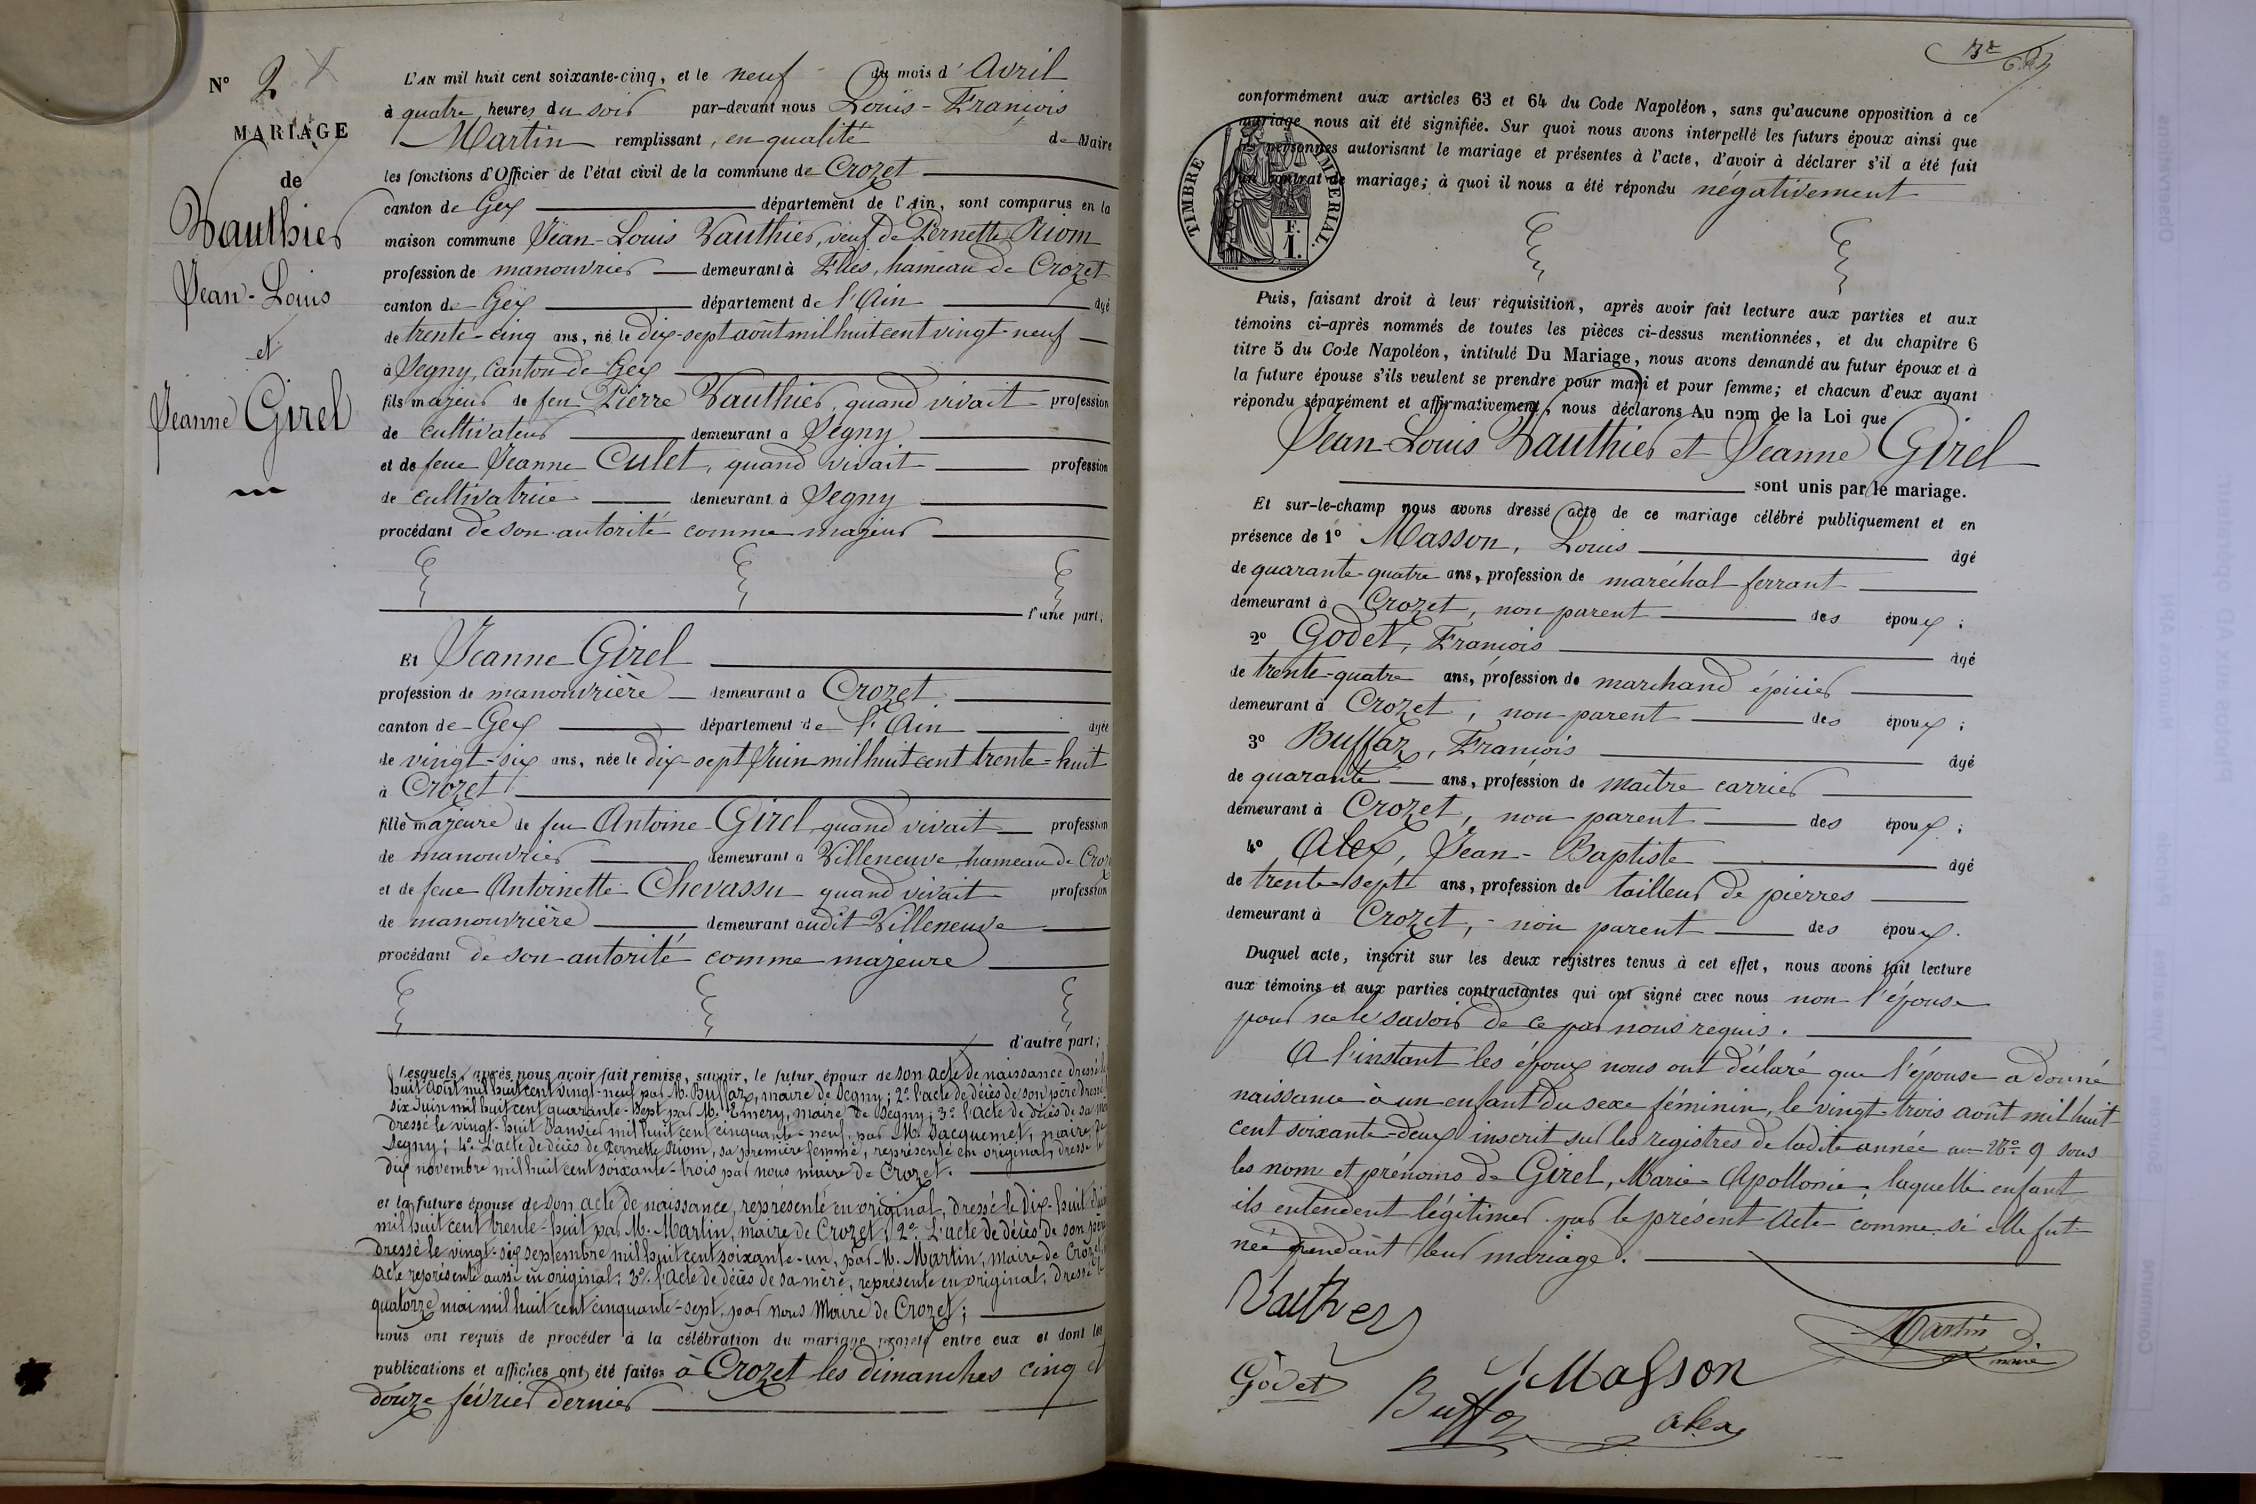 N° 2
MARIAGE
de
Vauthier
Jean-Louis
et
Jeanne Girel
L'AN mil huit cent soixante-cinq, et le neuf du mois d'Avril
à quatre heures du soir par-devant nous Louis-François
Martin remplissant, en qualité de Maire
les fonctions d'Officier de l'état civil de la commune de Crozet
canton de Gex département de l'Ain, sont comparus en la
maison commune Jean-Louis Vauthier, veuf de Pernette Riom
profession de manouvrier demeurant à Flies, hameau de Crozet
canton de Gex département de l'Ain âgé
de trente-cinq ans, né le dix-sept août mil huit cent vingt-neuf
à Segny, Canton de Gex
fils majeur de feu Pierre Vauthier, quand vivait profession
de cultivateur demeurant à Segny
et de feue Jeanne Culet, quand vivait profession
de cultivatrice demeurant à Segny
procédant de son autorité comme majeur
d'une part;
Et Jeanne Girel
profession de manouvrière demeurant à Crozet
canton de Gex département de l'Ain âgée
de vingt-six ans, née le dix-sept Juin mil huit cent trente-huit
à Crozet
fille majeure de feu Antoine Girel quand vivait profession
de manouvrier demeurant à Villeneuve hameau de Croz
et de feue Antoinette Chevassu quand vivait profession
de manouvrière demeurant audit Villeneuve
procédant de son autorité comme majeure
d'autre part;
Lesquels, après nous avoir fait remise, savoir, le futur époux de son acte de naissance dressé le
huit Août mil huit cent vingt-neuf par M. Buffaz, maire de Segny; 2° l'acte de décès de son père dressé
six Juin mil huit cent quarante-sept par M. Emery, maire de Segny; 3° l'acte de décès de sa
dressé le vingt-huit Janvier mil huit cent cinquante-neuf, par M. Jacquemet, maire de
Segny; 4° L'acte de décès de Pernette Riom, sa première femme, représenté en original, dressé le
dix novembre mil huit cent soixante-trois par nous maire de Crozet.
et la future épouse de son acte de naissance, représenté en original, dressé le Dix-huit Juin
mil huit cent trente-huit par M. Martin, maire de Crozet; 2° L'acte de décès de son père
dressé le vingt-six septembre mil huit cent soixante-un, par M. Martin, maire de Crozet,
acte représenté aussi en original; 3° l'acte de décès de sa mère, représenté en original, dressé le
quatorze mai mil huit cent cinquante-sept, par nous Maire de Crozet;
nous ont requis de procéder à la célébration du mariage projeté entre eux et dont les
publications et affiches ont été faites à Crozet les dimanches cinq et
douze février dernier
conformément aux articles 63 et 64 du Code Napoléon, sans qu'aucune opposition à ce
mariage nous ait été signifiée. Sur quoi nous avons interpellé les futurs époux ainsi que
personnes autorisant le mariage et présentes à l'acte, d'avoir à déclarer s'il a été fait
un contrat de mariage; à quoi il nous a été répondu négativement
TIMBRE IMPÉRIAL.
1 F.
Puis, faisant droit à leur réquisition, après avoir fait lecture aux parties et aux
témoins ci-après nommés de toutes les pièces ci-dessus mentionnées, et du chapitre 6
titre 5 du Code Napoléon, intitulé Du Mariage, nous avons demandé au futur époux et à
la future épouse s'ils veulent se prendre pour mari et pour femme; et chacun d'eux ayant
répondu séparément et affirmativement, nous déclarons Au nom de la Loi que
Jean-Louis Vauthier et Jeanne Girel
sont unis par le mariage.
Et sur-le-champ nous avons dressé acte de ce mariage célébré publiquement et en
présence de 1° Masson, Louis âgé
de quarante-quatre ans, profession de maréchal ferrant
demeurant à Crozet, non parent des époux;
2° Godet, François âgé
de trente-quatre ans, profession de marchand épicier
demeurant à Crozet, non parent des époux;
3° Buffaz, François âgé
de quarante ans, profession de maître carrier
demeurant à Crozet, non parent des époux;
4° Alex, Jean-Baptiste âgé
de trente-sept ans, profession de tailleur de pierres
demeurant à Crozet, non parent des époux.
Duquel acte, inscrit sur les deux registres tenus à cet effet, nous avons fait lecture
aux témoins et aux parties contractantes qui ont signé avec nous non l'épouse
pour ne le savoir de ce par nous requis.
A l'instant les époux nous ont déclaré que l'épouse a donné
naissance à un enfant du sexe féminin, le vingt-trois août mil huit
cent soixante-deux inscrit sur les registres de ladite année au N° 9 sous
les nom et prénoms de Girel, Marie-Apollonie, laquelle enfant
ils entendent légitimer par le présent Acte comme si elle fut
née pendant leur mariage.
Vauthier
Martin
maire
Godet
Masson
Buffaz
alex